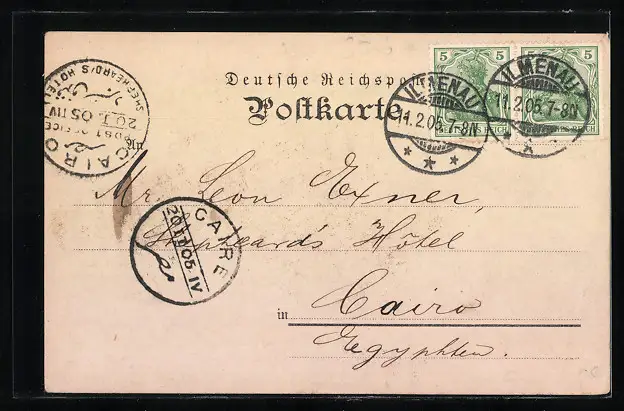 Deutsche Reichspost
Postkarte
5 5 5 5
ILMENAU
11.2.05.7-8N
ILMENAU
11.2.05.7-8N
CAIRO
POST OFFICE
20.II.05 IV
SHEPHEARD'S HOTEL
An
Mr. Leon Exner,
Shepheard's Hôtel
CAIRE
20.II.05.IV
in Cairo
Egyphten.